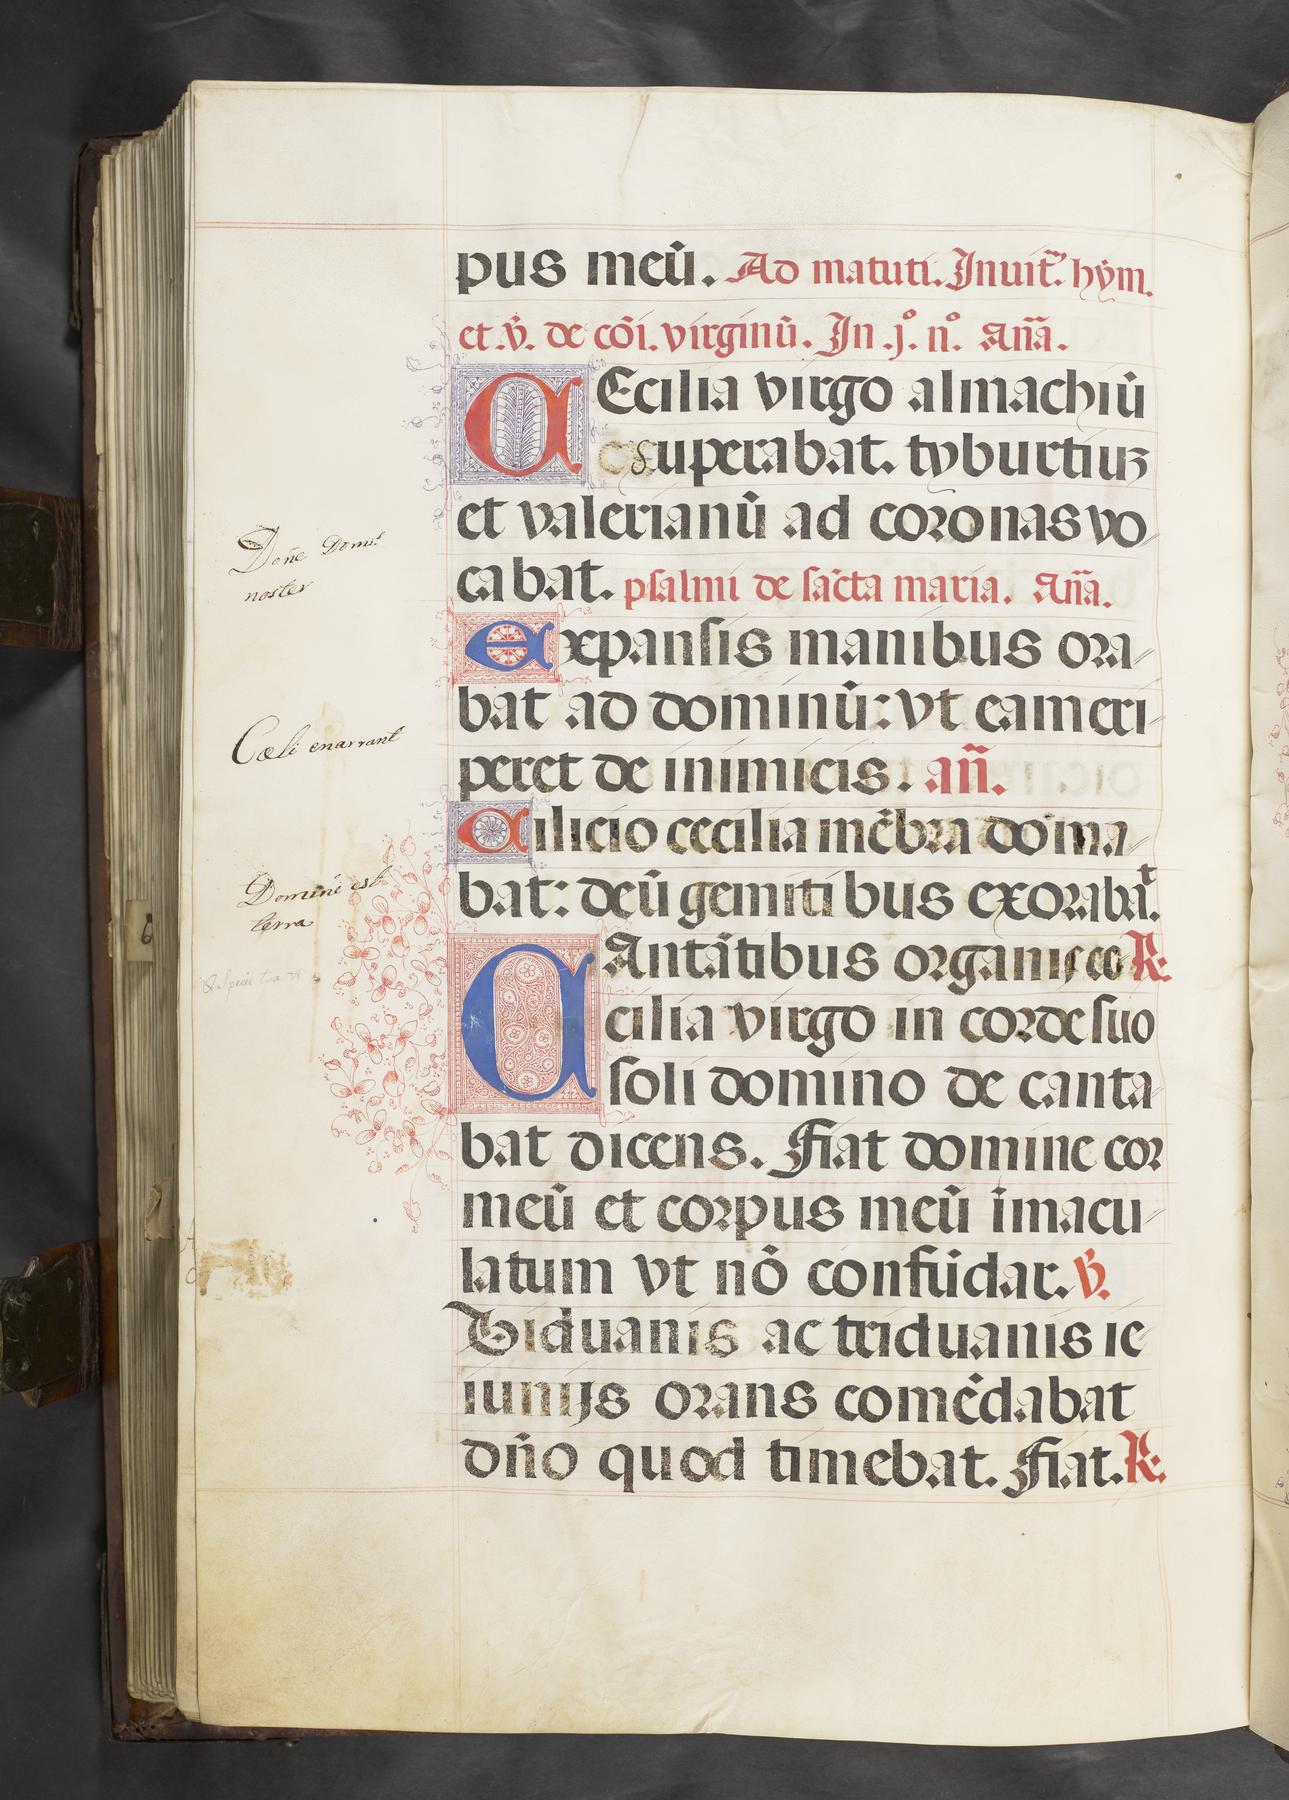 pus meū. Ad matuti. Inuit̃. hẏm.
et .v̄. de cōi. virginū. In .j.º n.º Añã.
CEcilia virgo almachiū
superabat. tyburtiuz
et valerianū ad coronas vo
cabat. psalmi de sācta maria. Añã.
Expansis manibus ora
bat ad dominū: vt eam eri
peret de inimicis. añ̃.
Cilicio cecilia mēbra doma
bat: deū gemitibus exorabat.
CAntātibus organis ce ℟.
cilia virgo in corde suo
soli domino de canta
bat dicens. Fiat domine cor
meū et corpus meū īmacu
latum vt nō confūdar. ℣.
Biduanis ac triduanis ie
iunijs orans comēdabat
dño quod timebat. Fiat. ℟.
Doñe Domi.s
noster
Cœli enarrant
Domini est
terra
6